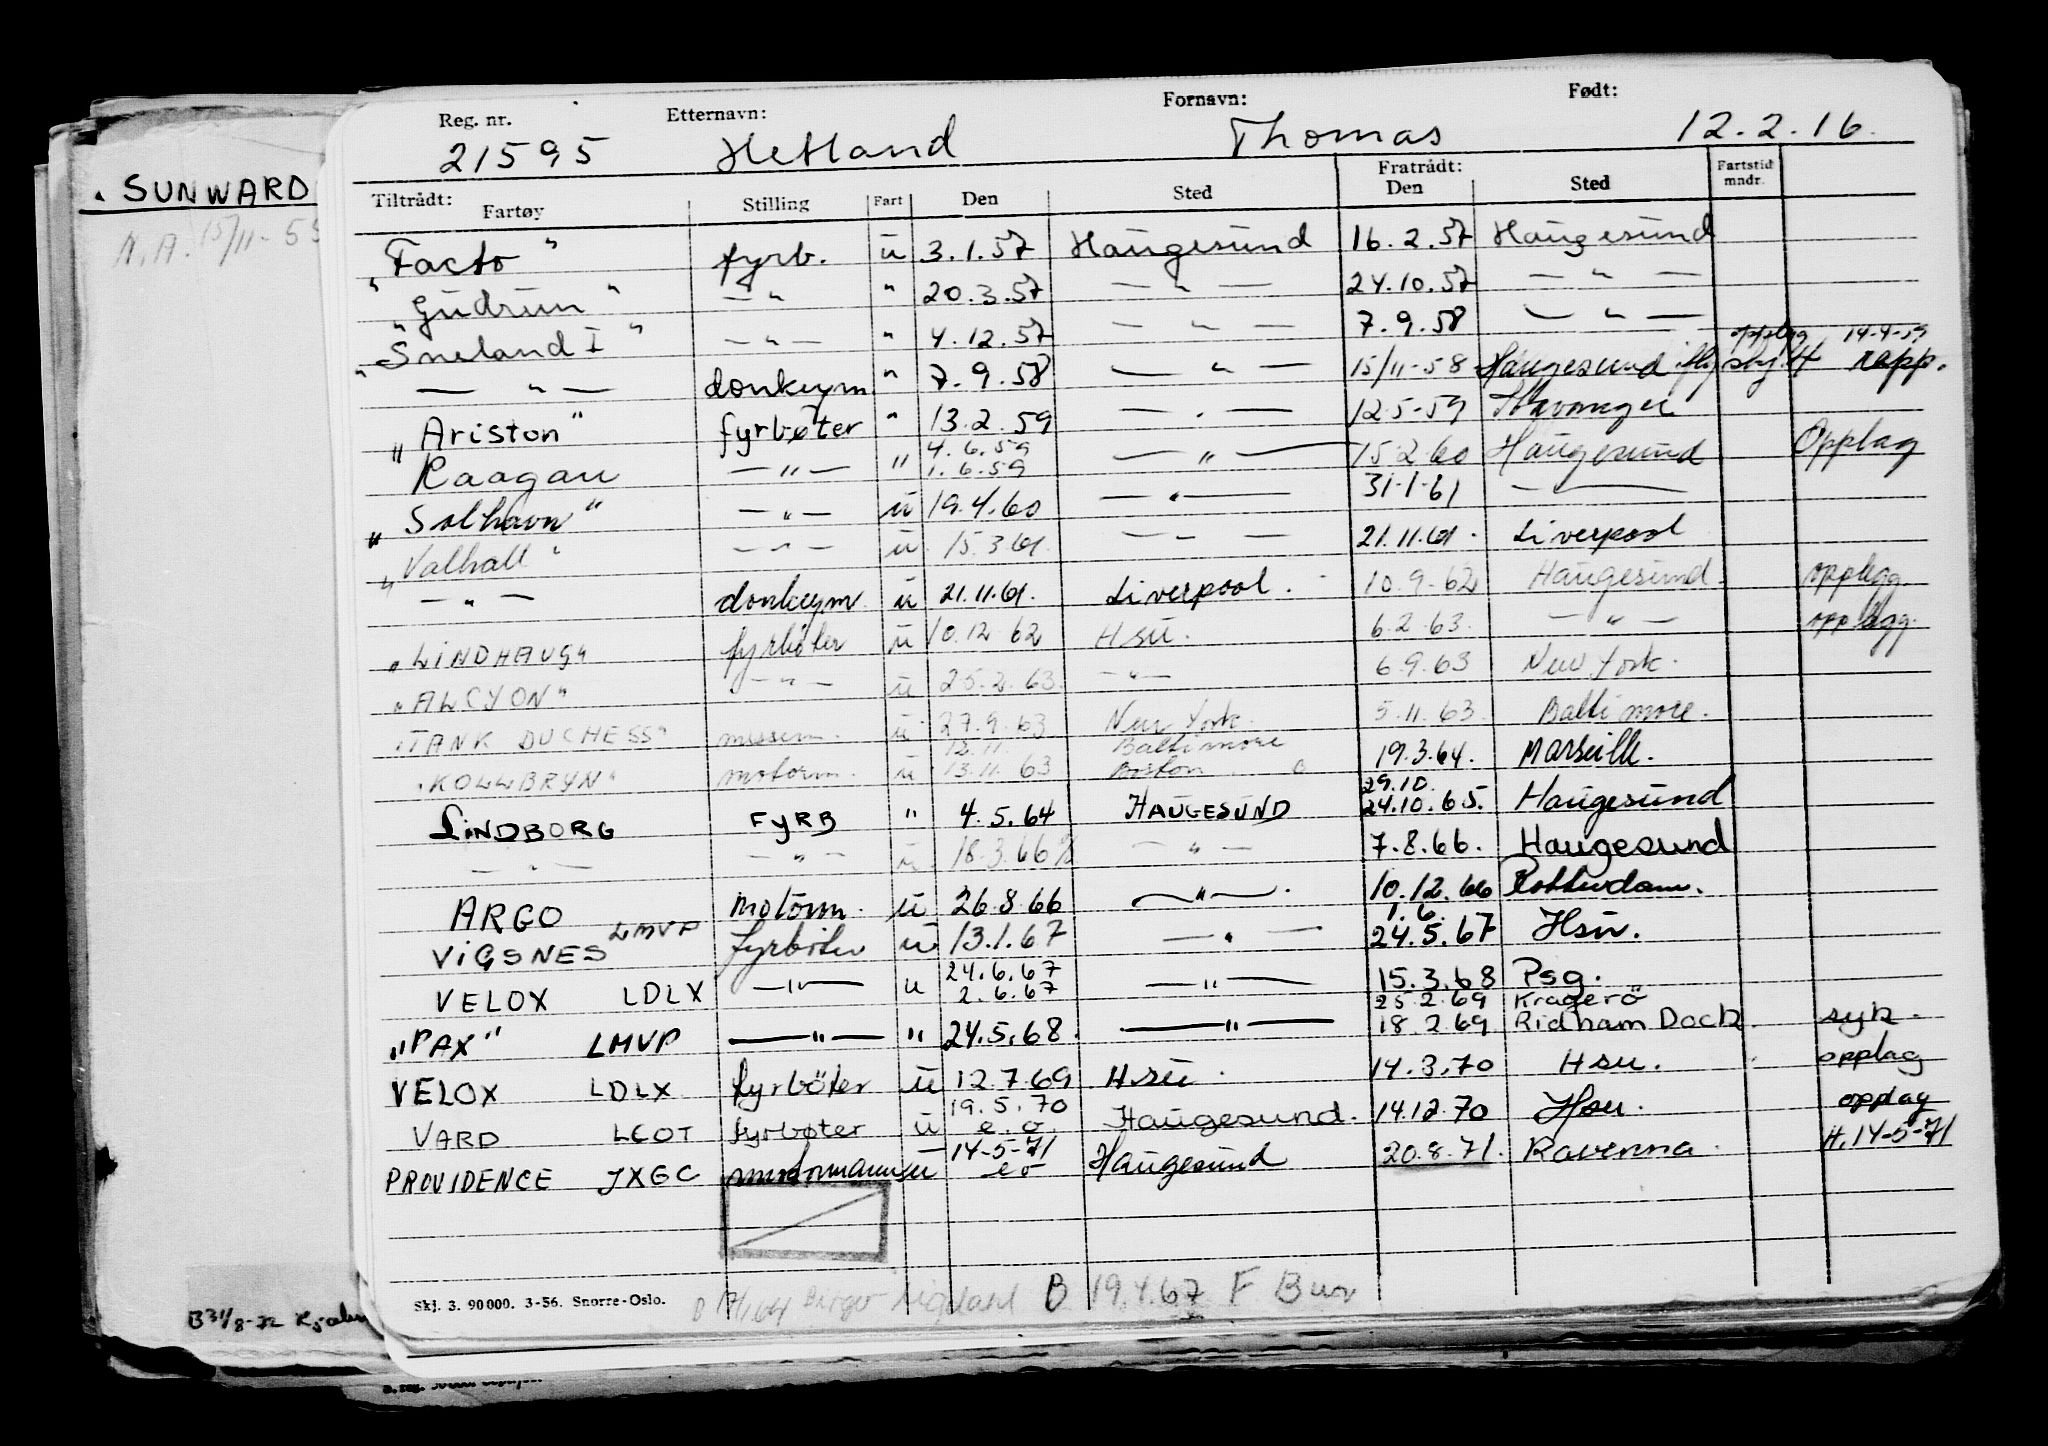 SUNWARD
N.A. 15/11-55
Reg. nr. Etternavn: Fornavn: Født:
21595 Hetland Thomas 12.2.16.
Tiltrådt: Fratrådt:
Fartøy Stilling Fart Den Sted Den Sted Fartstid mndr.
"Facto" fyrb. u 3.1.57 Haugesund 16.2.57 Haugesund
"Gudrun" — " " 20.3.57 — " — 24.10.57 — " —
"Sneland I" — " — " 4.12.57 — " — 7.9.58 — " —
opplag 14-4-59
— " — donkeym. " 7.9.58 — " — 15/11-58 Haugesund rapp.
"Ariston" fyrbøter " 13.2.59 — " — 12.5-59 Stavanger
4.6.59
Raagan — " — " 1.6.59 — " — 15.2.60 Haugesund Opplag
"Solhavn" — " — u 19.4.60 — " — 31-1-61 —
"Valhall" — " — u 15.3.61. — " — 21.11.61. Liverpool
— " — donkeym u 21.11.61. Liverpool. 10.9.62 Haugesund. opplegg.
"LINDHAUG" fyrbøter u 10.12.62 Hsu. 6.2.63. — " — opplegg.
"ALCYON" — " — u 25.2.63. — " — 6.9.63 New York.
"TANK DUCHESS" messem. u 27.9.63 New York. 5.11.63. Baltimore.
12.11. Baltimore
"KOLLBRYN" motorm. u 13.11.63 Boston 19.3.64. Marseille.
29.10.
LINDBORG FYRB " 4.5.64 HAUGESUND 24.10.65. Haugesund
— " — — " — u 18.3.66 — " — 7.8.66. Haugesund
ARGO motorm. u 26.8.66 — " — 10.12.66 Rotterdam.
1.6.
VIGSNES LMVP fyrbøter u 13.1.67 — " — 24.5.67 Hsu.
24.6.67
VELOX LDLX — " — u 2.6.67 — " — 15.3.68 Psg.
25.2.69 Kragerö
"PAX" LMVP — " — " 24.5.68. — " — 18.2.69 Ridham Dock. syk.
VELOX LDLX fyrböter u 12.7.69 Hsu. 14.3.70 Hsu. opplag
19.5.70
VARD LCOT fyrbøter u e.o. Haugesund. 14.12.70 Hsu. opplag
14-5-71
PROVIDENCE JXGC motormann u eo Haugesund 20.8.71. Ravenna. H. 14-5-71
Skj. 3. 90 000. 3-56. Snorre-Oslo. Birger B 19.4.67 F Bur
B 31/8-72